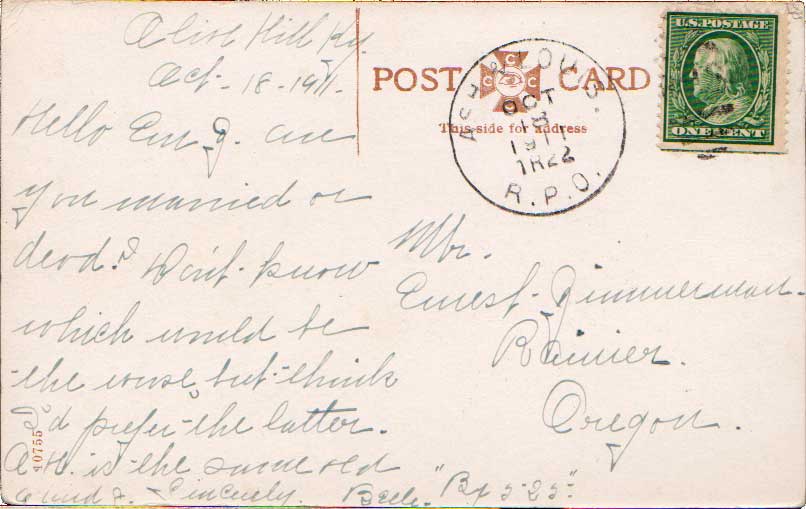 Olive Hill Ky.
Oct- 18- 1911.
Hello Ern J. are
you married or
dead? Don't know
which would be
the worse, but think
I'd prefer the latter.
O. H. is the same old
Sincerely. Belle. "Bx 525".
10755
POST CARD
This side for address
C C C C
ASH & LOUIS.
OCT
18
1911
TR22
R.P.O.
U.S. POSTAGE
ONE CENT
Mr.
Ernest Zimmerman
Rainier.
Oregon.